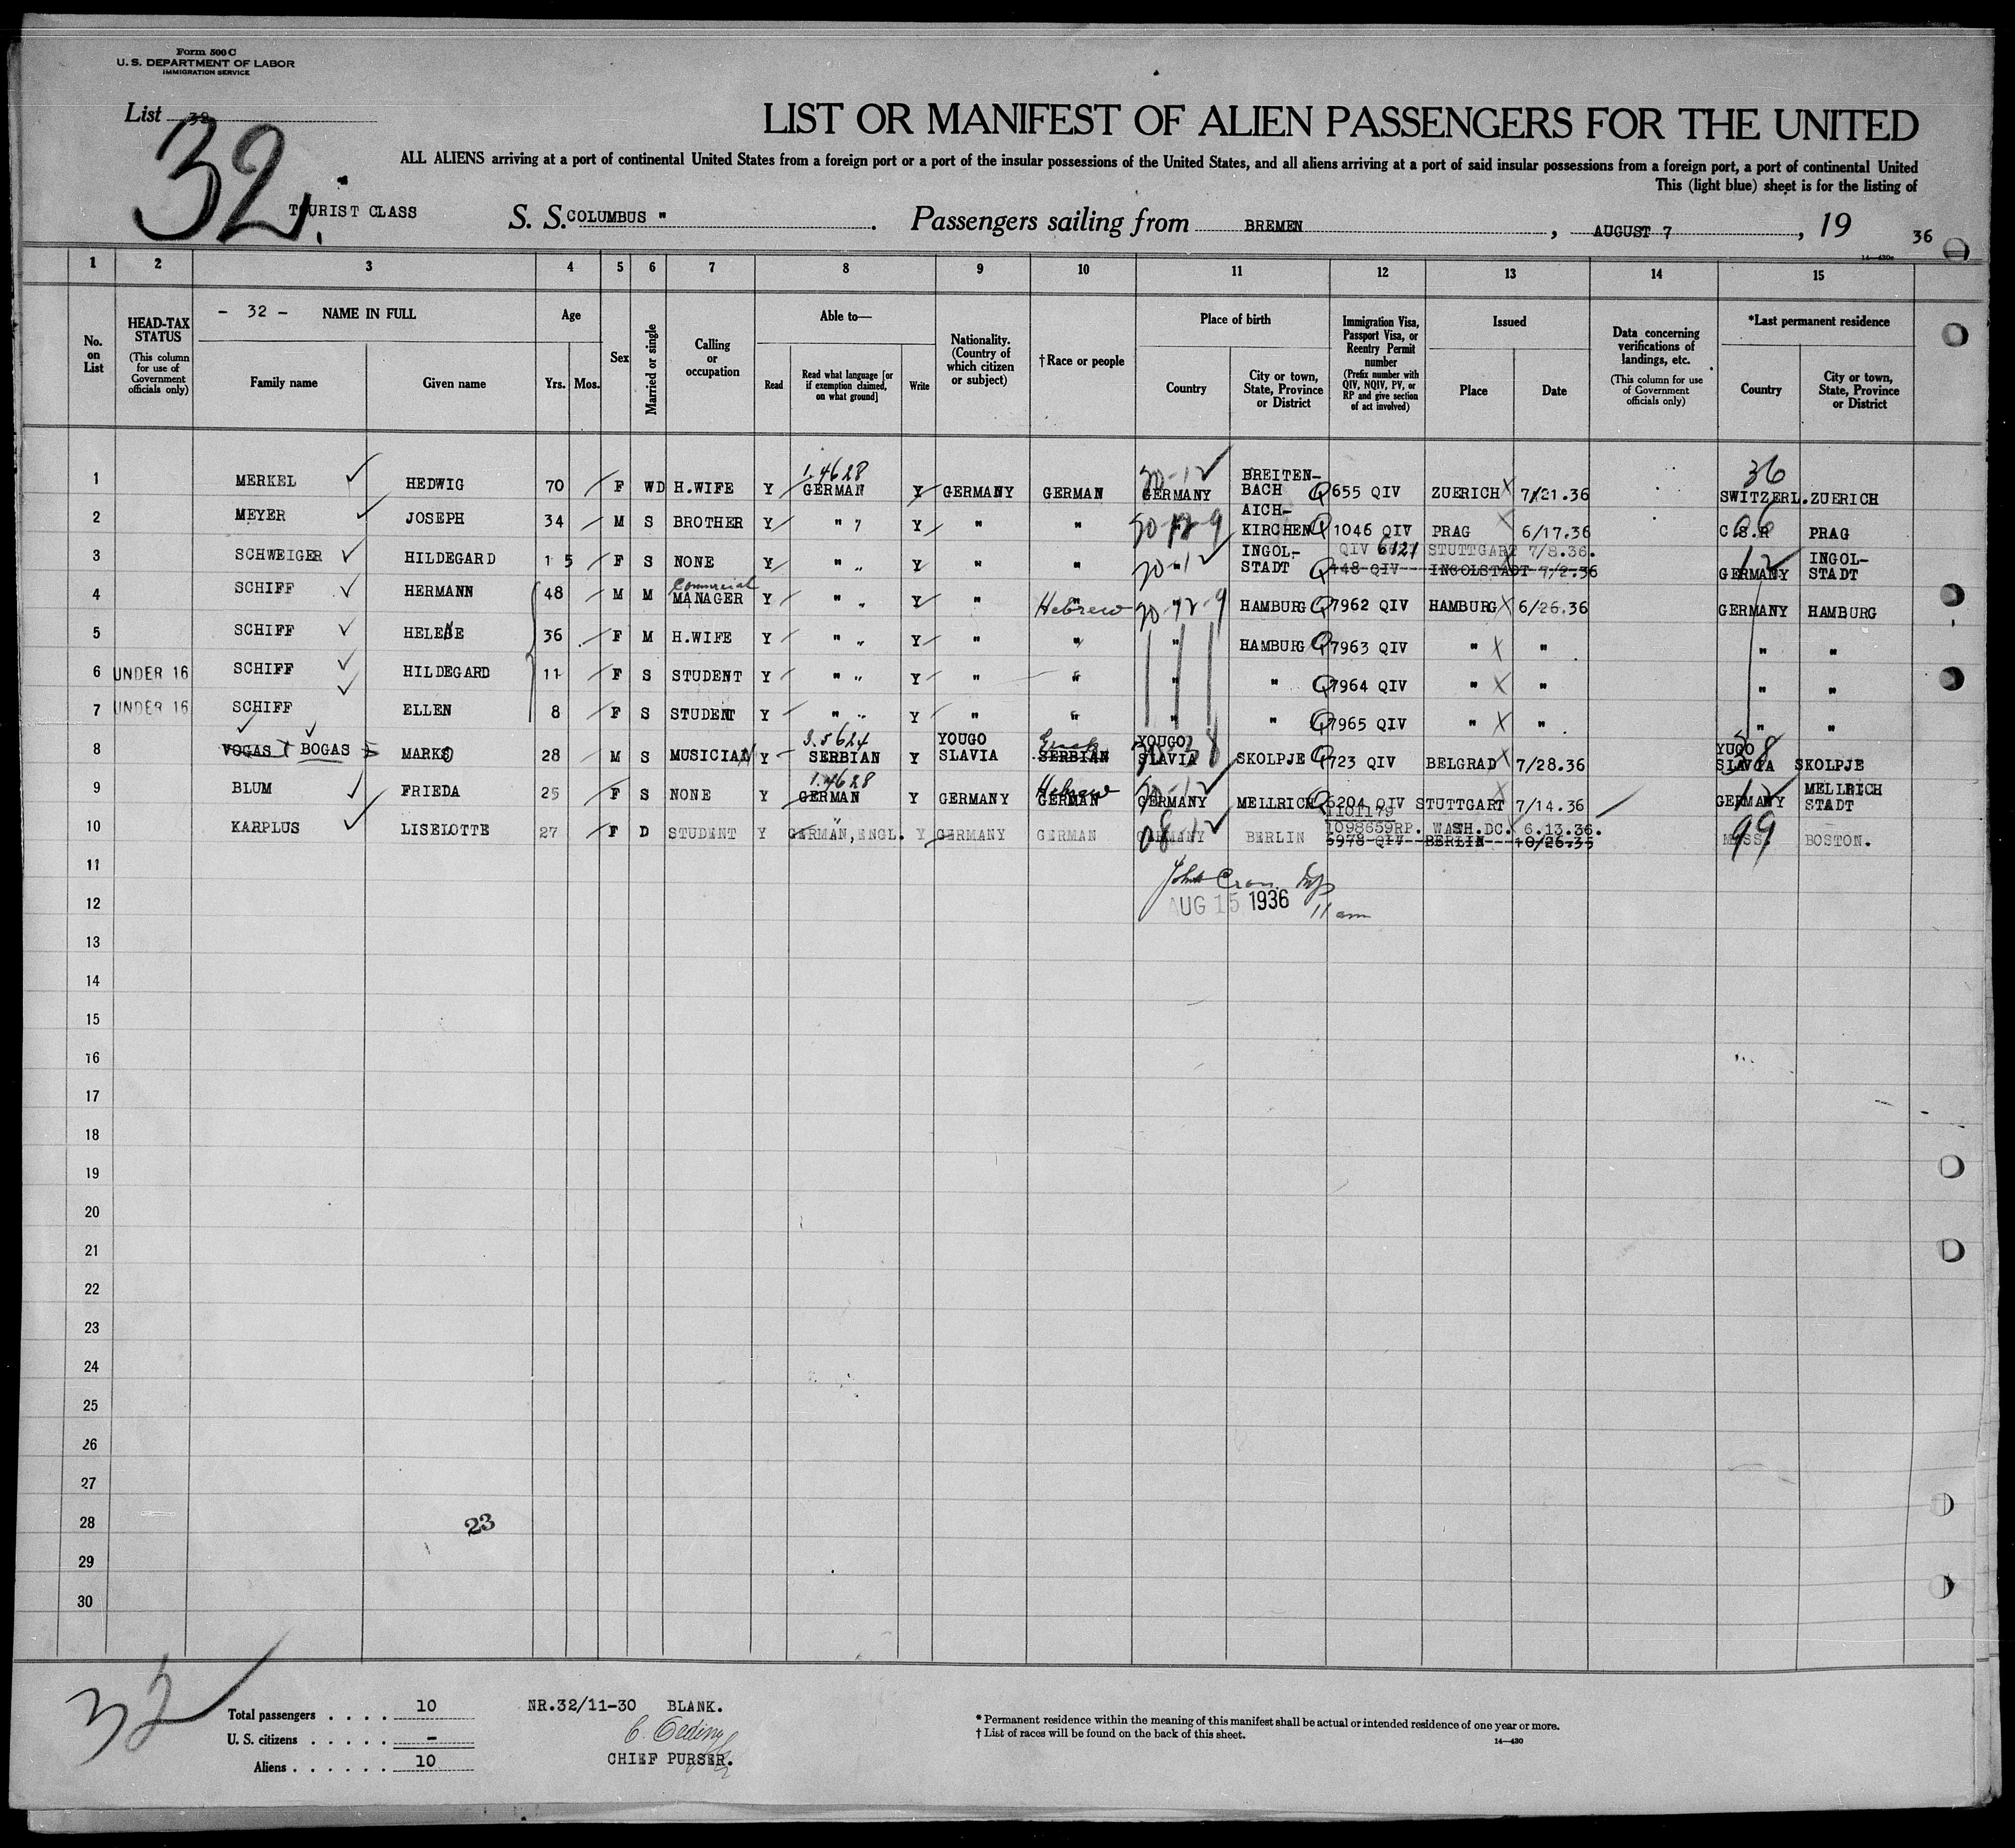 Form 500 C
U. S. DEPARTMENT OF LABOR
IMMIGRATION SERVICE
List 32
32.
LIST OR MANIFEST OF ALIEN PASSENGERS FOR THE UNITED
ALL ALIENS arriving at a port of continental United States from a foreign port or a port of the insular possessions of the United States, and all aliens arriving at a port of said insular possessions from a foreign port, a port of continental United
This (light blue) sheet is for the listing of
TOURIST CLASS S. S. COLUMBUS " . Passengers sailing from BREMEN , AUGUST 7 , 19 36
1 2 3 4 5 6 7 8 9 10 11 12 13 14 15
No. on List
HEAD-TAX STATUS (This column for use of Government officials only)
- 32 - NAME IN FULL
Family name Given name
Age
Yrs. Mos.
Sex
Married or single
Calling or occupation
Able to—
Read Read what language [or if exemption claimed, on what ground] Write
Nationality. (Country of which citizen or subject)
†Race or people
Place of birth
Country City or town, State, Province or District
Immigration Visa, Passport Visa, or Reentry Permit number (Prefix number with QIV, NQIV, PV, or RP and give section of act involved)
Issued
Place Date
Data concerning verifications of landings, etc. (This column for use of Government officials only)
*Last permanent residence
Country City or town, State, Province or District
1 MERKEL HEDWIG 70 F WD H.WIFE Y 1.4628 GERMAN Y GERMANY GERMAN GERMANY BREITEN-BACH Q 655 QIV ZUERICH 7/21.36 36 SWITZERL. ZUERICH
2 MEYER JOSEPH 34 M S BROTHER Y " Y " " " AICH-KIRCHEN Q 1046 QIV PRAG 6/17.36 C.S.R PRAG
3 SCHWEIGER HILDEGARD 15 F S NONE Y " Y " " " INGOL-STADT QIV 6121 STUTTGART 7/8.36.
Q 148 QIV INGOLSTADT 7/2.36 12 GERMANY INGOL-STADT
4 SCHIFF HERMANN 48 M M Commercial MANAGER Y " Y " Hebrew " HAMBURG Q 7962 QIV HAMBURG 6/26.36 GERMANY HAMBURG
5 SCHIFF HELENE 36 F M H.WIFE Y " Y " " " HAMBURG Q 7963 QIV " " " "
6 UNDER 16 SCHIFF HILDEGARD 11 F S STUDENT Y " Y " " " " Q 7964 QIV " " " "
7 UNDER 16 SCHIFF ELLEN 8 F S STUDENT Y " Y " " " " Q 7965 QIV " " " "
8 VOGAS BOGAS MARKO 28 M S MUSICIAN Y 3.5624 SERBIAN Y YOUGO SLAVIA SERBIAN YOUGO SLAVIA SKOLPJE Q 723 QIV BELGRAD 7/28.36 YUGO SLAVIA SKOLPJE
9 BLUM FRIEDA 25 F S NONE Y 1.4628 GERMAN Y GERMANY Hebrew GERMAN GERMANY MELLRICH Q 6204 QIV STUTTGART 7/14.36 12 GERMANY MELLRICH STADT
10 KARPLUS LISELOTTE 27 F D STUDENT Y GERMAN, ENGL. Y GERMANY GERMAN GERMANY BERLIN 1101179
1098659RP. WASH.DC. 6.13.36.
5978 QIV BERLIN 10/26.35 99 MASS. BOSTON.
11
12 AUG 15 1936 11 am
13
14
15
16
17
18
19
20
21
22
23
24
25
26
27
28 23
29
30
32
Total passengers . . . . 10
U. S. citizens . . . . . -
Aliens . . . . . . 10
NR.32/11-30 BLANK.
CHIEF PURSER.
* Permanent residence within the meaning of this manifest shall be actual or intended residence of one year or more.
† List of races will be found on the back of this sheet.
14—430